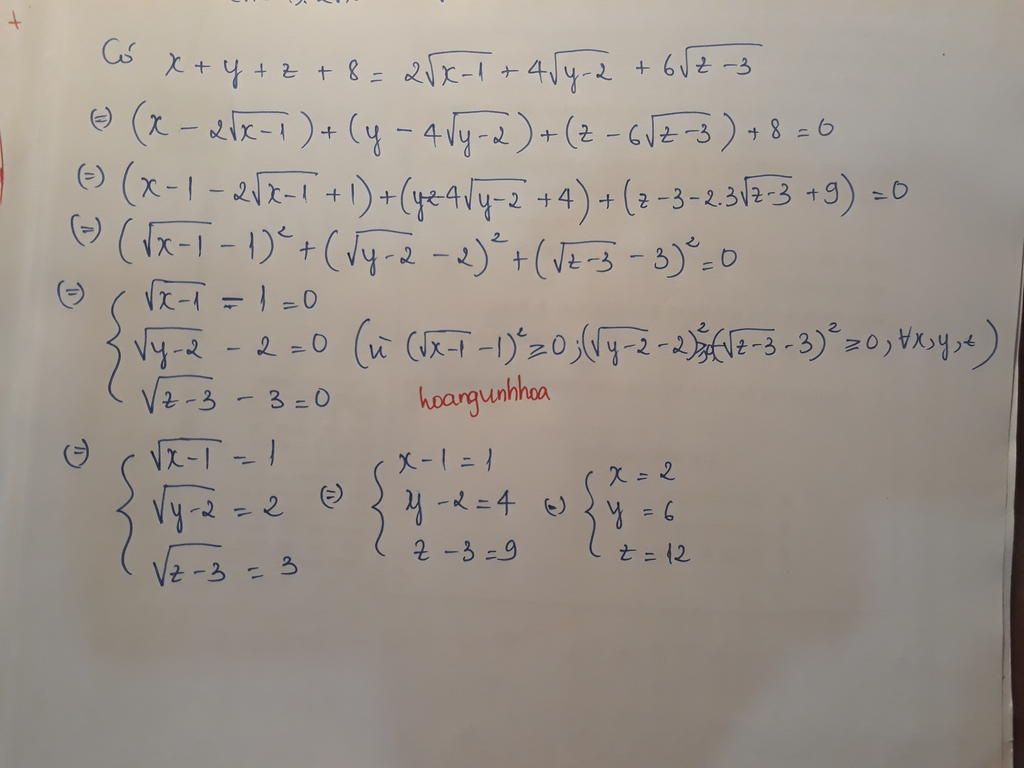 Có x + y + z + 8 = 2√(x-1) + 4√(y-2) + 6√(z-3)
(=) (x - 2√(x-1)) + (y - 4√(y-2)) + (z - 6√(z-3)) + 8 = 0
(=) (x-1 - 2√(x-1) + 1) + (y-2-4√(y-2) + 4) + (z-3-2.3√(z-3) + 9) = 0
(=) (√(x-1) - 1)² + (√(y-2) - 2)² + (√(z-3) - 3)² = 0
(=) { √(x-1) - 1 = 0
√(y-2) - 2 = 0 (vì (√(x-1) - 1)² ≥ 0; (√(y-2) - 2)² ≥ 0; (√(z-3) - 3)² ≥ 0, ∀x, y, z)
√(z-3) - 3 = 0
hoangunhhoa
(=) { √(x-1) = 1 (=) { x-1 = 1 (=) { x = 2
√(y-2) = 2 y-2 = 4 y = 6
√(z-3) = 3 z-3 = 9 z = 12